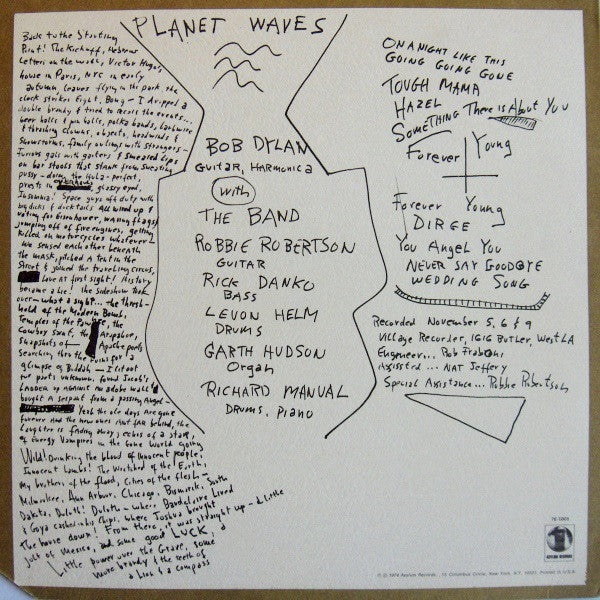 PLANET WAVES
Back to the Starting
Point! The Kickoff, Hebrew
Letters on the wall, Victor Hugo's
house in Paris, NYC in early
autumn, leaves flying in the park, the
clock strikes Eight, Bong — I dropped a
double brandy & tried to recall the events...
beer halls & pin balls, polka bands, barbwire
& thrashing clowns, objects, headwinds &
snowstorms, family outings with strangers —
Furious gals with garters & smeared Lips
on bar stools that stank from sweating
pussy — doing the Hula — perfect,
priests in glassy eyed,
Insomnia! Space guys off duty with
big dicks & ducktails All wired up &
voting for Eisenhower, waving flags &
jumping off of fire engines, getting
killed on motorcycles whatever —
We sensed each other beneath
the mask, pitched a tent in the
Street & joined the traveling circus,
Love at first sight! History
became a lie! the sideshow took
over — what a sight... the thresh-
hold of the Modern Bomb,
Temples of the Pawnee, the
Cowboy Saint, the Arapahoe,
Snapshots of Apache poets
Searching thru the ruins for a
glimpse of Buddah — I lit out
for parts unknown, found Jacob's
Ladder up against an adobe wall &
bought a serpent from a passing Angel —
Yeah the ole days are gone
forever and the new ones aint far behind, the
Laughter is fading away, echos of a star,
of Energy Vampires in the Gone World going
Wild! Drinking the blood of innocent people,
Innocent Lambs! The Wretched of the Earth,
My brothers of the flood, Cities of the flesh —
Milwaukee, Ann Arbor, Chicago, Bismarck, South
Dakota, Duluth! Duluth — where Baudelaire Lived
& Goya cashed in his Chips, where Joshua brought
The house down! From there, it was straight up — a little
jolt of Mexico, and some good LUCK, a
Little power over the Grave, some
more brandy & the teeth of
a Lion & a compass
BOB DYLAN
Guitar, HARMONICA
with
THE BAND
ROBBIE ROBERTSON
GUITAR
RICK DANKO
BASS
LEVON HELM
DRUMS
GARTH HUDSON
Organ
RICHARD MANUAL
DRUMS, PIANO
ON A NIGHT LIKE THIS
GOING GOING GONE
TOUGH MAMA
HAZEL
SOMETHING There is About You
Forever Young
Forever Young
DIRGE
You Angel You
NEVER SAY GOODBYE
WEDDING SONG
Recorded November 5, 6 & 9
Village Recorder, 1616 Butler, West LA
Engeneer... Rob Fraboni
Assissted... NAT Jeffery
Special Assistance... Robbie Robertson
7E-1003
ASYLUM RECORDS
© ℗ 1974 Asylum Records, 15 Columbus Circle, New York, N.Y. 10023. Printed in U.S.A.